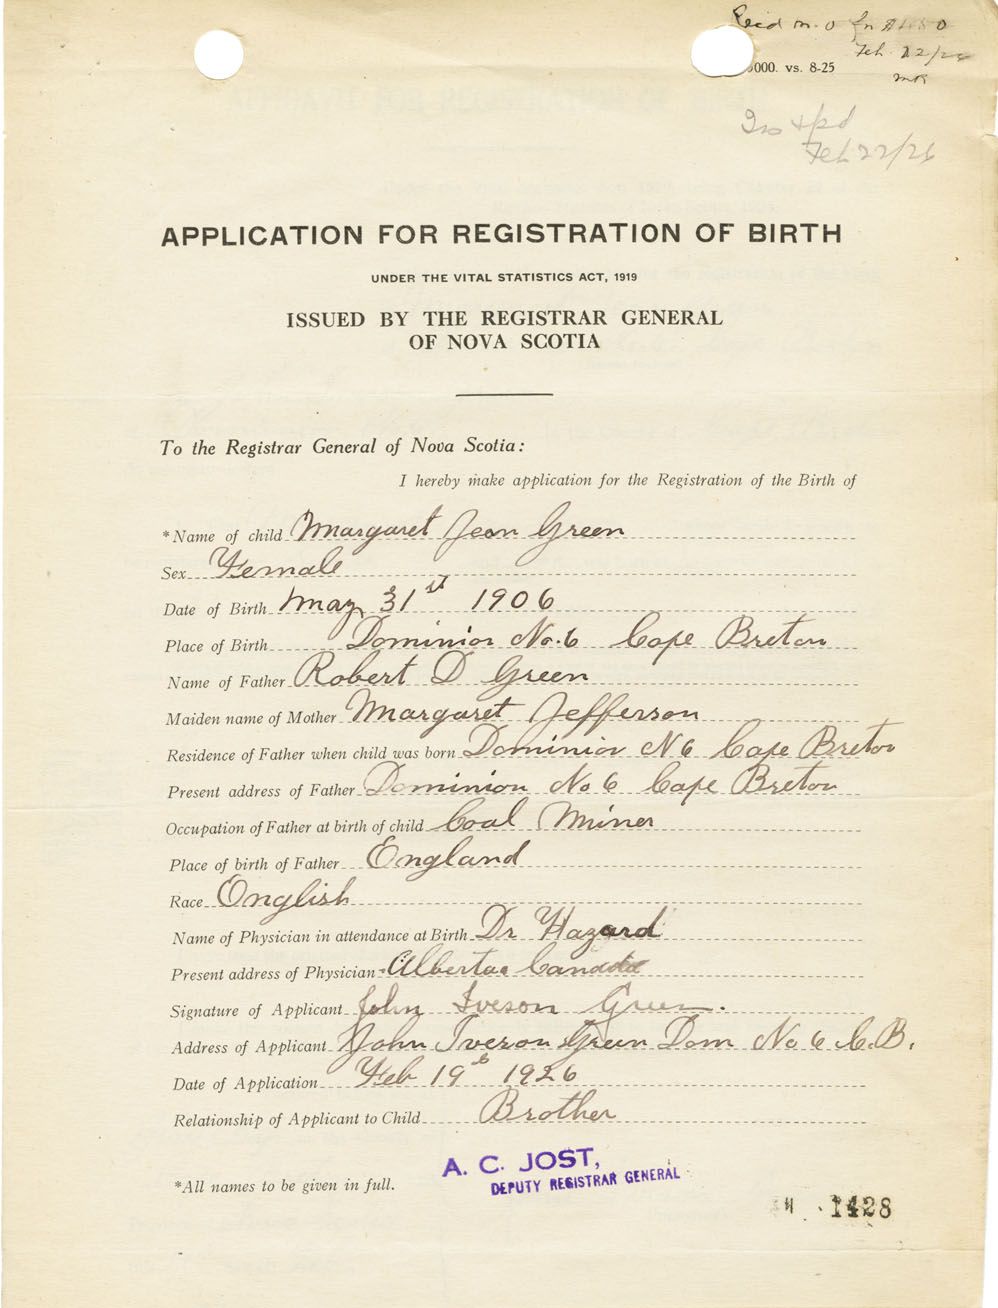 Recd m.o for
Feb. 22/26
000. vs. 8-25
Feb 22/26
APPLICATION FOR REGISTRATION OF BIRTH
UNDER THE VITAL STATISTICS ACT, 1919
ISSUED BY THE REGISTRAR GENERAL
OF NOVA SCOTIA
To the Registrar General of Nova Scotia:
I hereby make application for the Registration of the Birth of
*Name of child Margaret Jean Green
Sex Female
Date of Birth May 31st 1906
Place of Birth Dominion No. 6 Cape Breton
Name of Father Robert D Green
Maiden name of Mother Margaret Jefferson
Residence of Father when child was born Dominion N 6 Cape Breton
Present address of Father Dominion No 6 Cape Breton
Occupation of Father at birth of child Coal Miner
Place of birth of Father England
Race English
Name of Physician in attendance at Birth Dr Hazard
Present address of Physician Alberta Canada
Signature of Applicant John Iveson Green.
Address of Applicant John Iveson Green Dom No 6 C.B.
Date of Application Feb 19th 1926
Relationship of Applicant to Child Brother
A. C. JOST,
DEPUTY REGISTRAR GENERAL
*All names to be given in full.
1428